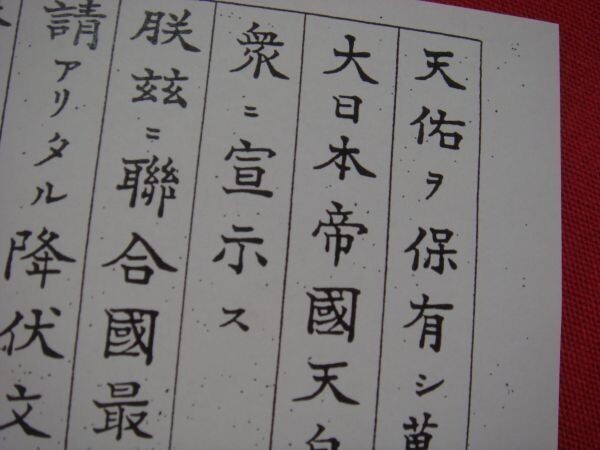 天佑ヲ保有シ萬
大日本帝國天皇
衆ニ宣示ス
朕玆ニ聯合國最
請アリタル降伏文